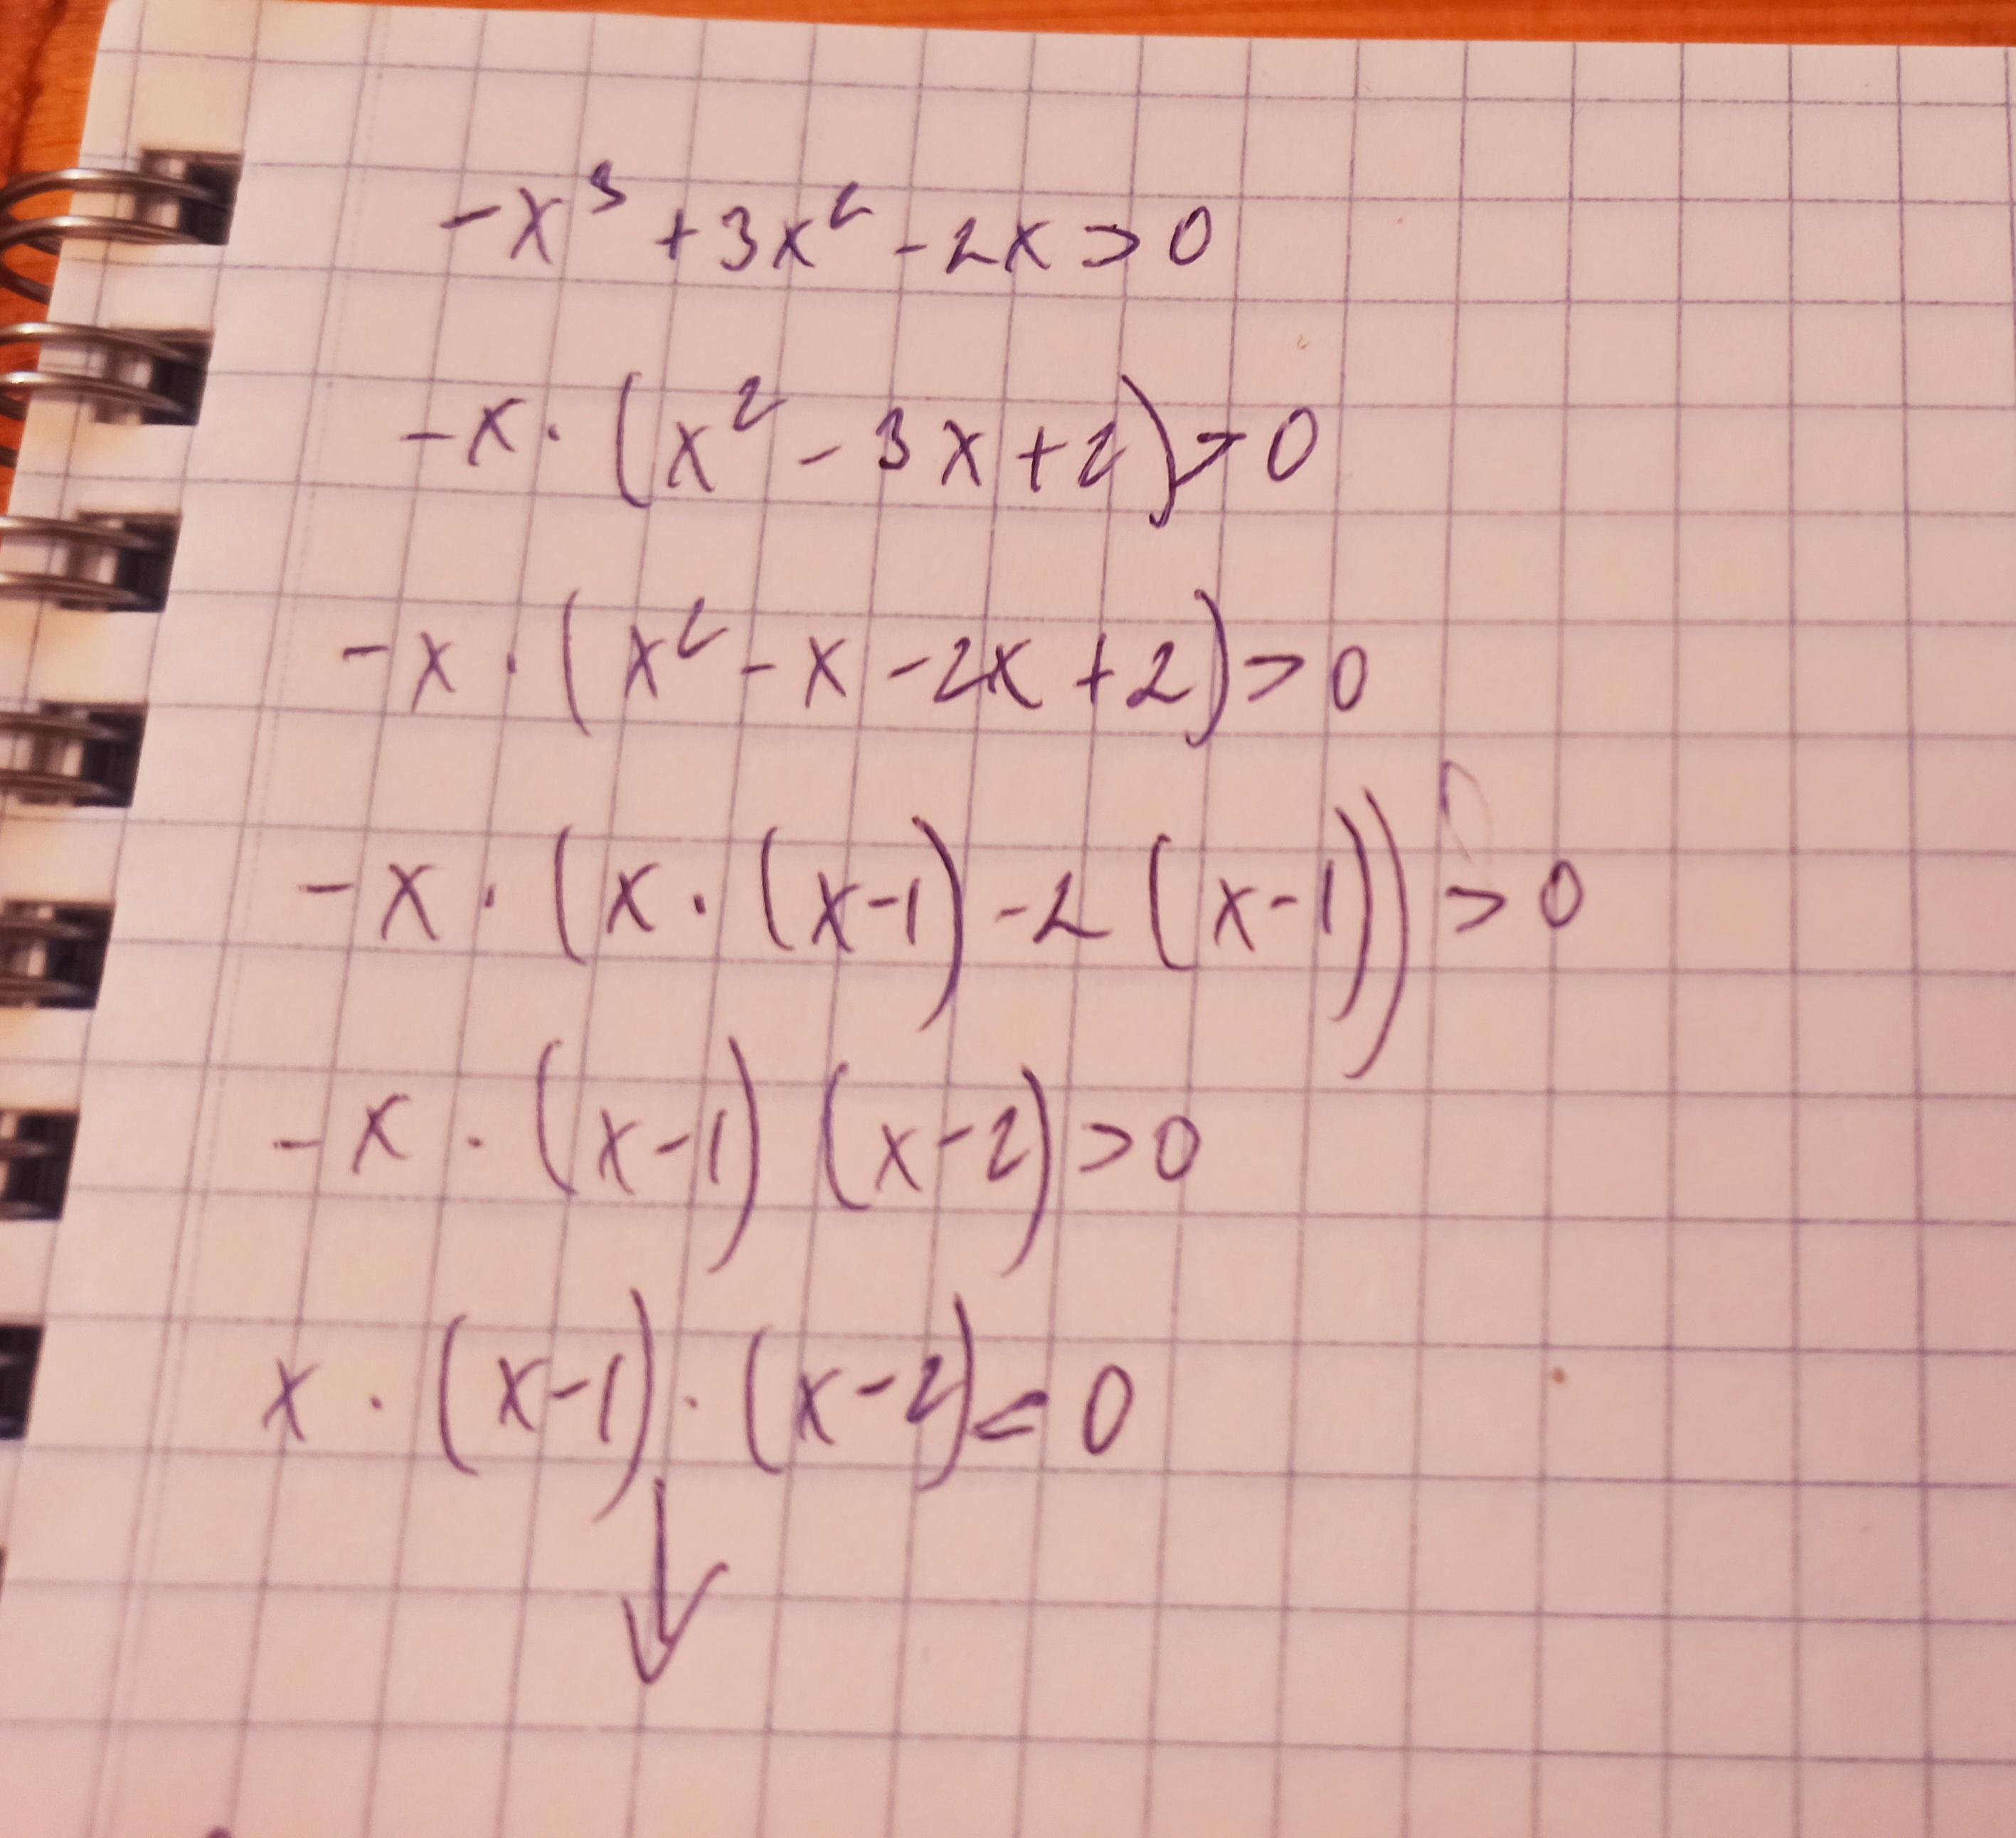 -x³ + 3x² - 2x > 0
-x · (x² - 3x + 2) > 0
-x · (x² - x - 2x + 2) > 0
-x · (x · (x-1) - 2 (x-1)) > 0
-x · (x-1) (x-2) > 0
x · (x-1) · (x-2) < 0